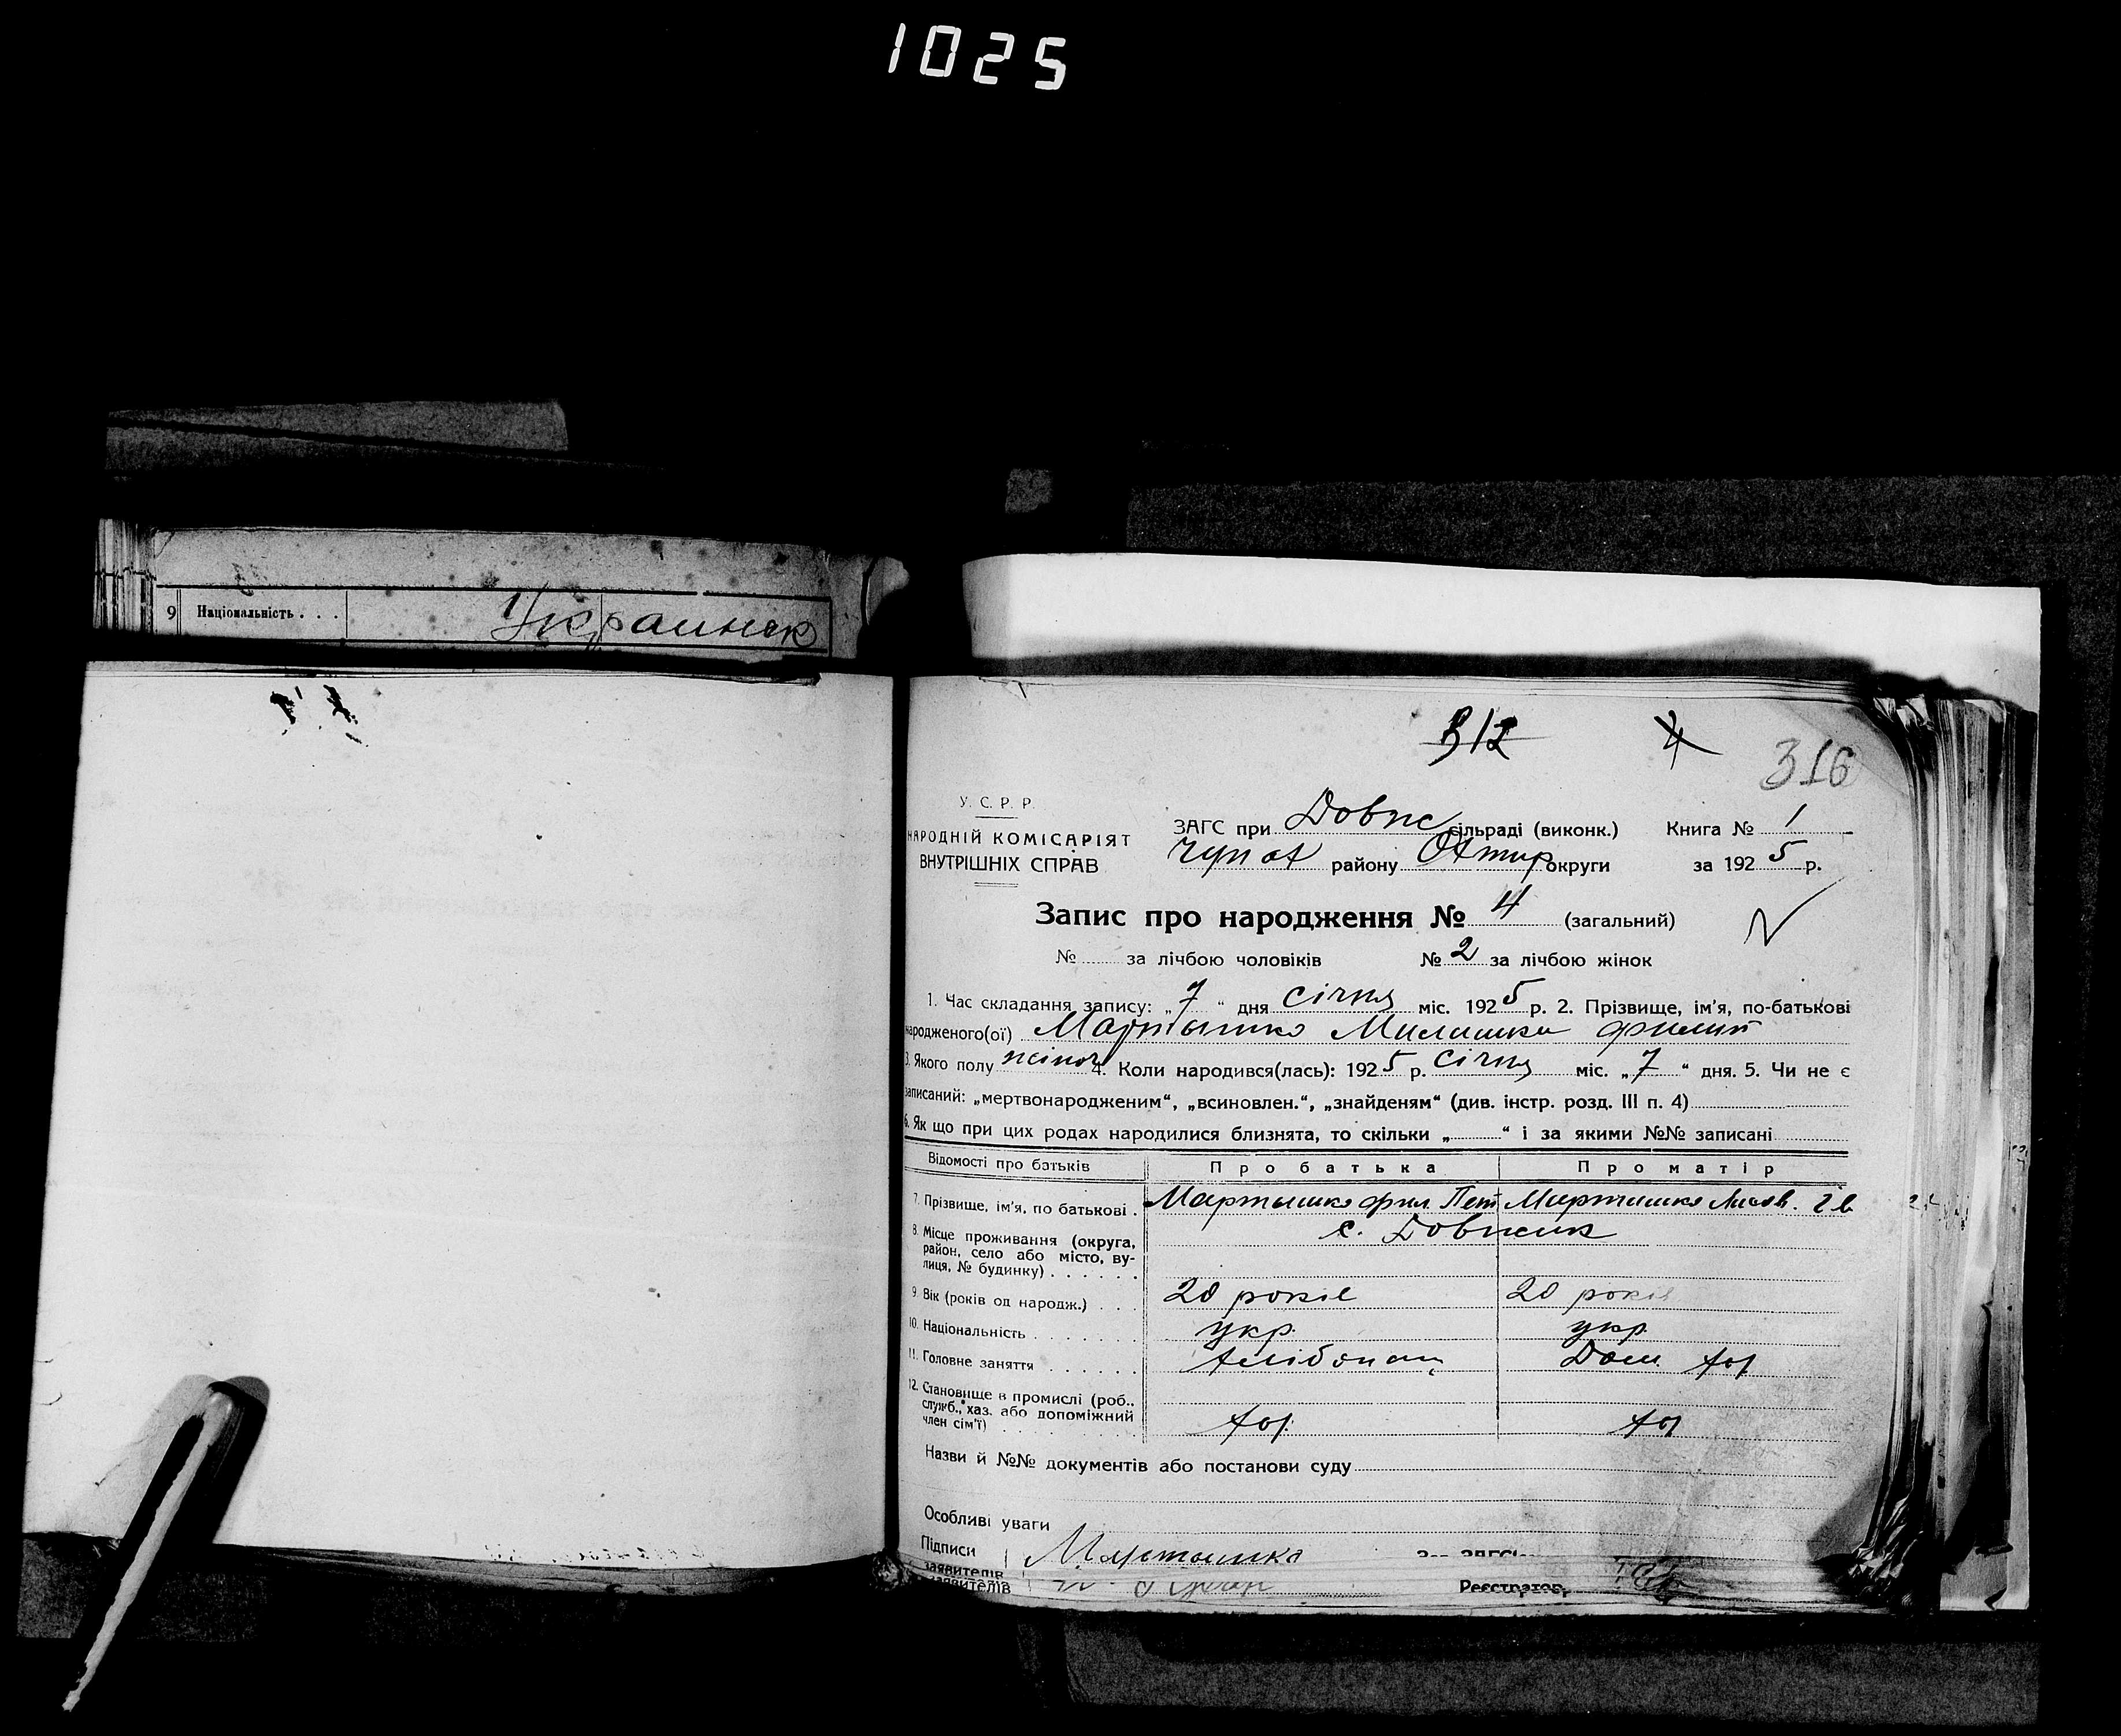 1025
9 Національність . . . Украинск
312 4 316
У. С. Р. Р.
НАРОДНІЙ КОМІСАРІЯТ
ВНУТРІШНІХ СПРАВ
ЗАГС при Довж сільраді (виконк.) Книга № 1
Чупах району Охтир округи за 1925 р.
Запис про народження № 4 (загальний)
№ за лічбою чоловіків № 2 за лічбою жінок
1. Час складання запису: „7“ дня січня міс. 1925 р. 2. Прізвище, ім'я, по-батькові
народженого(ої) Мартышко Милашка Филип
3. Якого полу жіноч 4. Коли народився(лась): 1925 р. січня міс. „7“ дня. 5. Чи не є
записаний: „мертвонародженим“, „всиновлен.“, „знайденям“ (див. інстр. розд. III п. 4)
6. Як що при цих родах народилися близнята, то скільки „ “ і за якими №№ записані
Відомості про батьків Про батька Про матір
7. Прізвище, ім'я, по батькові . Мартышко Фил. Пет Мартышко
8. Місце проживання (округа, район, село або місто, вулиця, № будинку) . . . . . . с. Довжик
9. Вік (років од народж.) . . . 20 років 20 років
10. Національність . . . . . . . укр. укр.
11. Головне заняття . . . . . . Хлібопаш Дом. хоз
12. Становище в промислі (роб., служб., хаз. або допоміжний член сім'ї) . . . . . . . хоз. хоз
Назви й №№ документів або постанови суду
Особливі уваги
Підписи Мартышка
заявителів
заявителів Реєстратор,